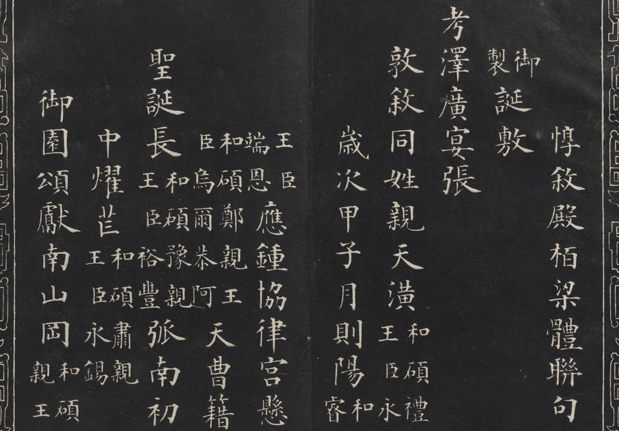 惇敘殿栢梁體聯句
御製誕敷
考澤廣宴張
敦敘同姓親天潢和碩禮王臣永
歲次甲子月則陽和睿
王臣端恩應鍾協律宮懸
和碩鄭親王臣烏爾恭阿天曹籍
聖誕長和碩豫親王臣裕豐弧南初
中燿芒和碩肅親王臣永錫
御園頌獻南山岡和碩親王